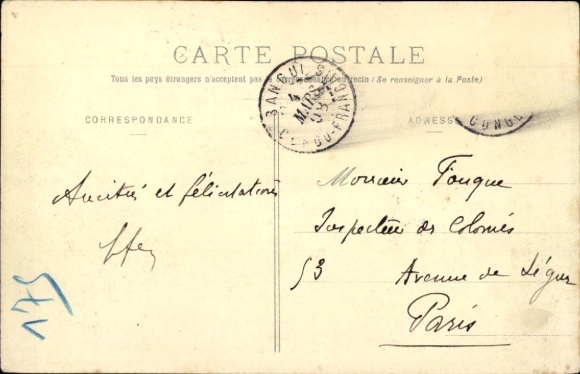 CARTE POSTALE
Tous les pays étrangers n'acceptent pas la correspondance au recto (Se renseigner à la Poste)
CORRESPONDANCE
ADRESSE
BANGUI
4
MARS
CONGO-FRANÇAIS
CONGO
Amitiés et félicitations
Monsieur Fouque
Inspecteur des Colonies
53 Avenue de Ségur
Paris
175